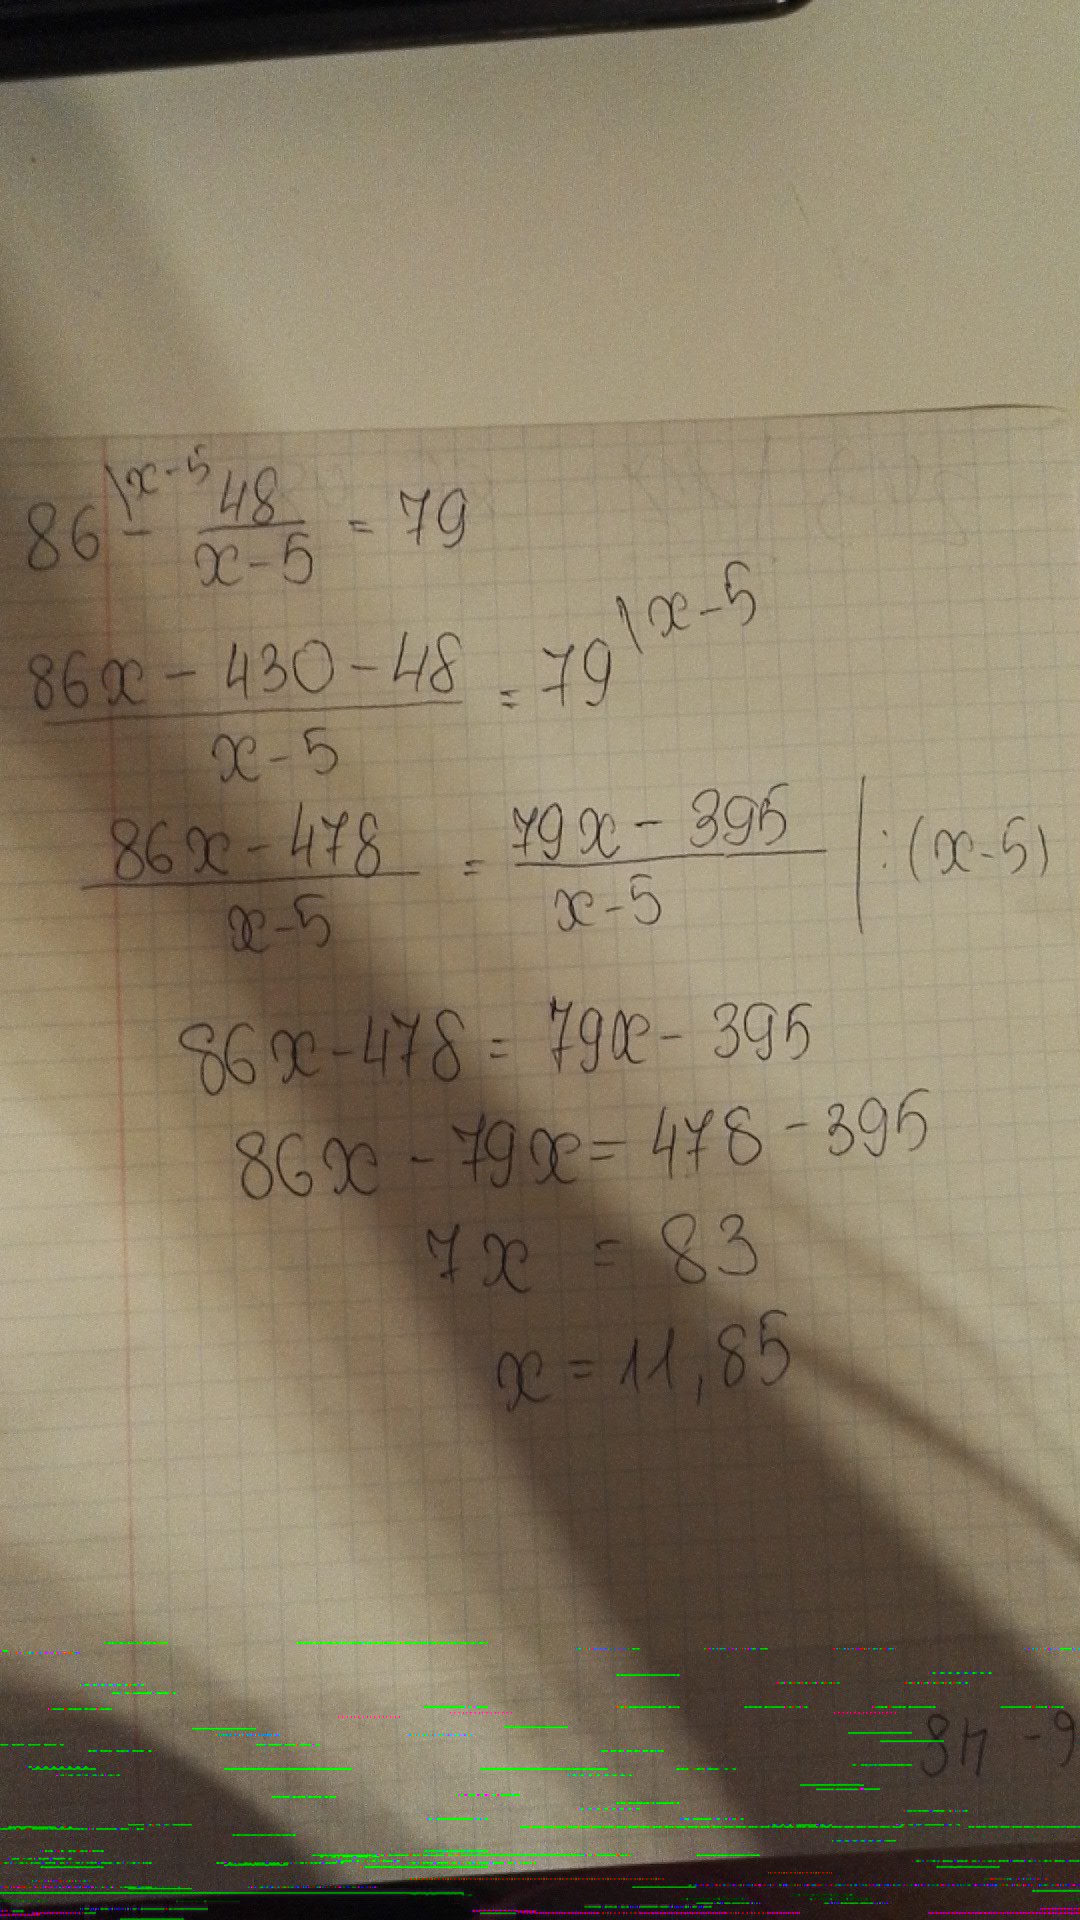 86\x-5 - 48/(x-5) = 79
(86x - 430 - 48)/(x-5) = 79\x-5
(86x - 478)/(x-5) = (79x - 395)/(x-5) | : (x-5)
86x - 478 = 79x - 395
86x - 79x = 478 - 395
7x = 83
x = 11,85
6 - 48